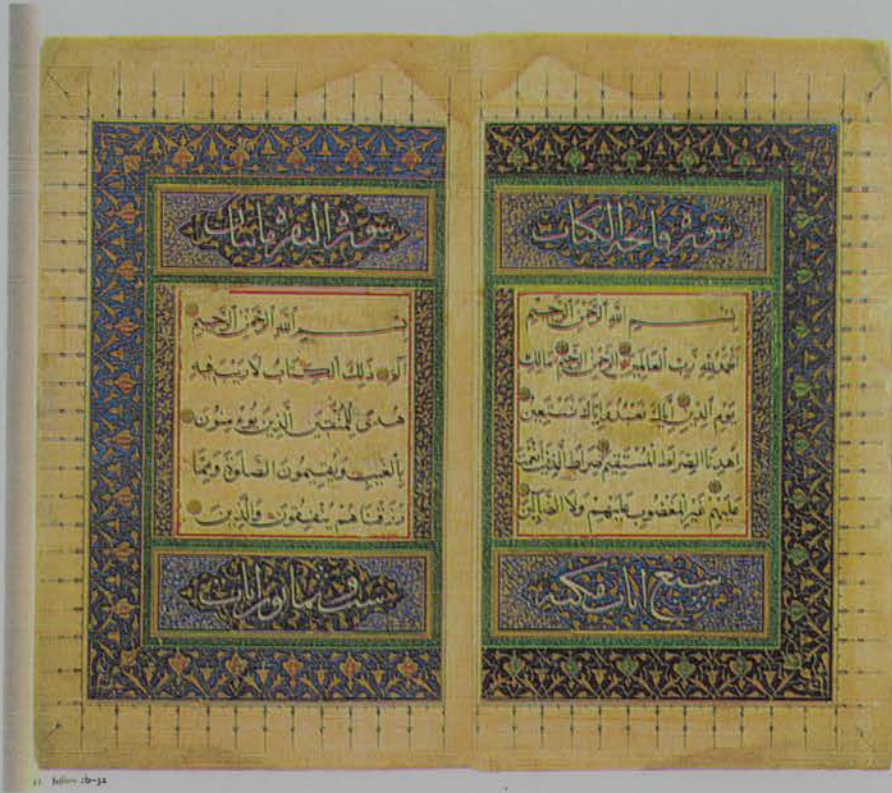 سورة فاتحة الكتاب
بسم الله الرحمن الرحيم
الحمد لله رب العالمين الرحمن الرحيم مالك
يوم الدين إياك نعبد وإياك نستعين
اهدنا الصراط المستقيم صراط الذين أنعمت
عليهم غير المغضوب عليهم ولا الضالين
سبع آيات مكية
سورة البقرة مائتان
بسم الله الرحمن الرحيم
الم ذلك الكتاب لا ريب فيه
هدى للمتقين الذين يؤمنون
بالغيب ويقيمون الصلوة ومما
رزقناهم ينفقون والذين
ست وثمانون آيات
folios 2b–3a